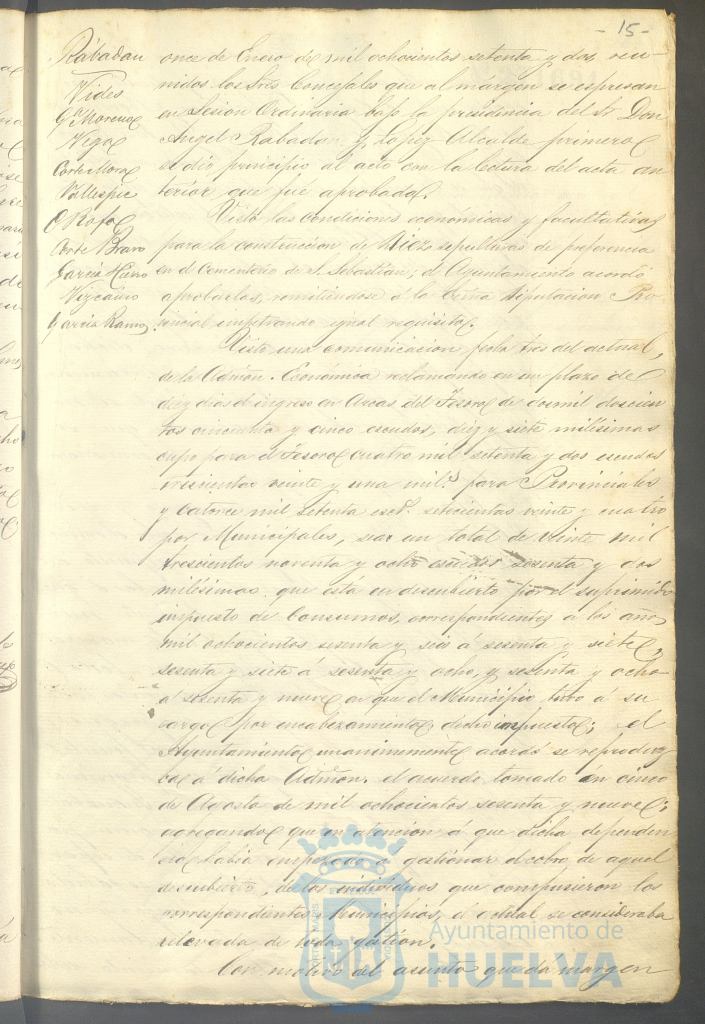 - 15 -
Rabadan
Vides
Gª Morena
Vega
Corte Mora
Vallespin
Rofo
Corte Bravo
Garcia Hierro
Vizcaino
Garcia Ramos
once de Enero de mil ochocientos setenta y dos, reu-
nidos los Sres Concejales que al márgen se espresan
en Sesion Ordinaria bajo la presidencia del Sr Don
Angel Rabadan y Lopez Alcalde primero
se dio principio al acto con la lectura del acta an
terior que fué aprobada.
Visto las condiciones económicas y facultativas
para la construccion de diez sepulturas de preferencia
en el Cementerio de S. Sebastián; el Ayuntamiento acordó
aprobarlas, remitiéndose á la Diputacion Pro
vincial impetrando igual requisito.
Visto una comunicacion fecha tres del actual,
de la Admon. Económica reclamando en un plazo de
diez dias el ingreso en Arcas del Tesoro de dosmil doscien
tos cincuenta y cinco escudos, diez y siete milésimas
cupo para el Tesoro cuatro mil setenta y dos escudos
trescientas veinte y una mil.s para Provinciales
y catorce mil setenta escs. setecientas veinte y cuatro
por Municipales, sea un total de veinte mil
trescientos noventa y ocho escudos sesenta y dos
milésimas que está en descubierto por el suprimido
impuesto de Consumos, correspondientes á los años
mil ochocientos sesenta y seis á sesenta y siete,
sesenta y siete á sesenta y ocho, y sesenta y ocho
á sesenta y nueve en que el Municipio tuvo á su
cargo por encabezamiento dicho impuesto; el
Ayuntamiento unanimemente acordó se reproduz
ca á dicha Admon. el acuerdo tomado en cinco
de Agosto de mil ochocientos sesenta y nueve;
agregando que en atencion á que dicha dependen
cia habia empezado á gestionar el cobro de aquel
descubierto, de los individuos que compusieron los
correspondientes Municipios, el actual se consideraba
relevado de toda gestion.
Con motivo del asunto que dá margen
Ayuntamiento de
HUELVA